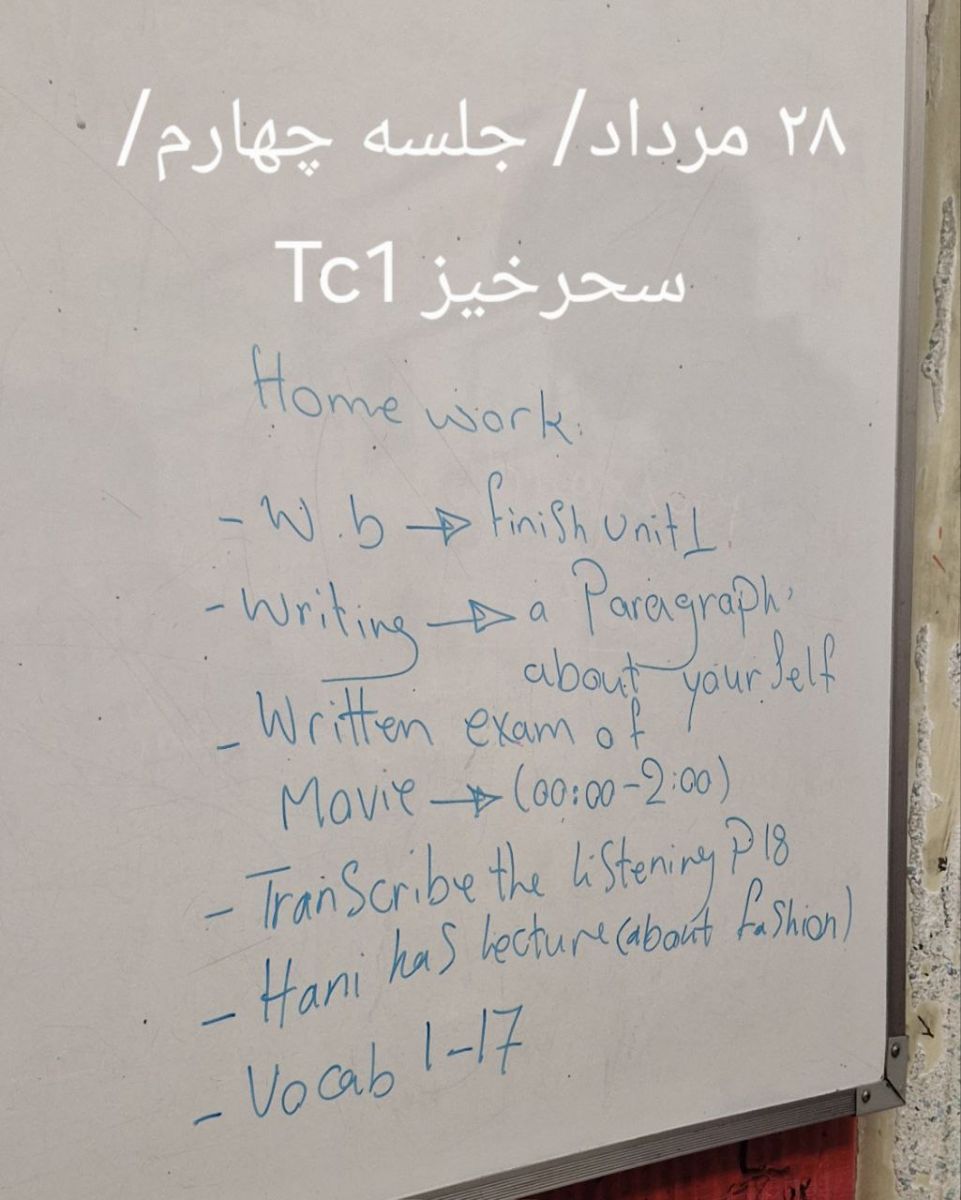 ۲۸ مرداد/ جلسه چهارم/
سحرخیز Tc1
Home work:
- W.b → finish unit 1
- Writing → a Paragraph
about yourself
- Written exam of
Movie → (00:00-2:00)
- Transcribe the listening P18
- Hani has lecture (about fashion)
- Vocab 1-17